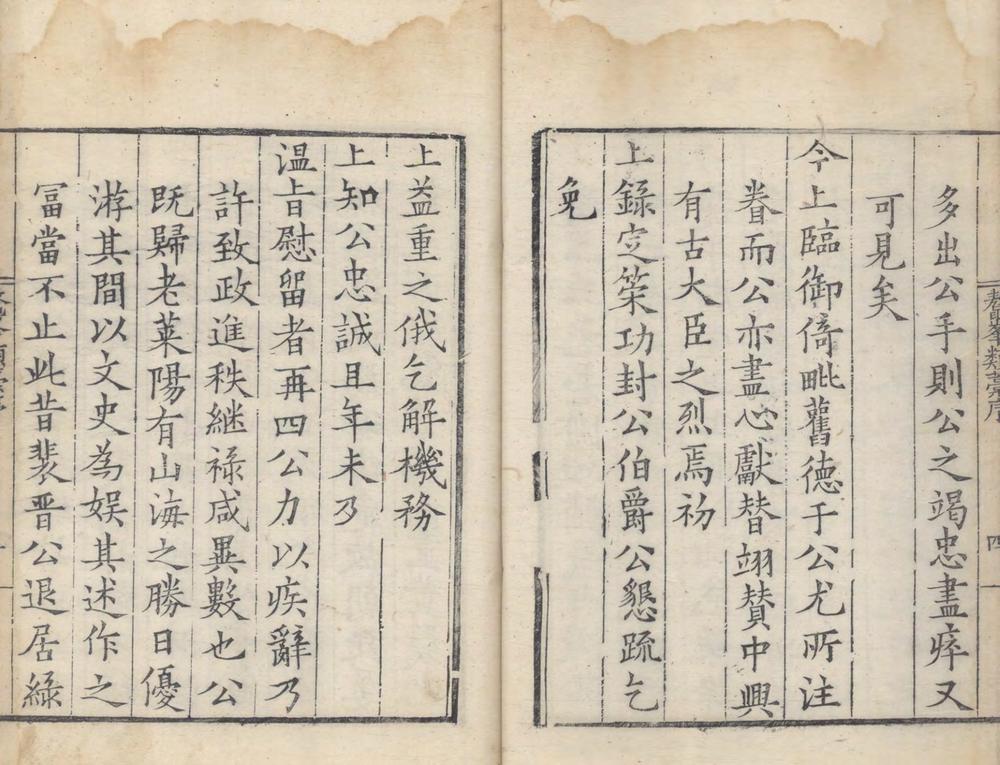 多出公手則公之竭忠盡瘁又
可見矣
今上臨御倚毗舊德于公尤所注
眷而公亦盡心獻替翊賛中興
有古大臣之烈焉礽
上錄定策功封公伯爵公懇疏乞
免
上益重之俄乞解機務
上知公忠誠且年未乃
温旨慰留者再四公力以疾辭乃
許致政進秩継祿咸異數也公
既歸老萊陽有山海之勝日優
游其間以文史為娱其述作之
冨當不止此昔裴晋公退居綠
四